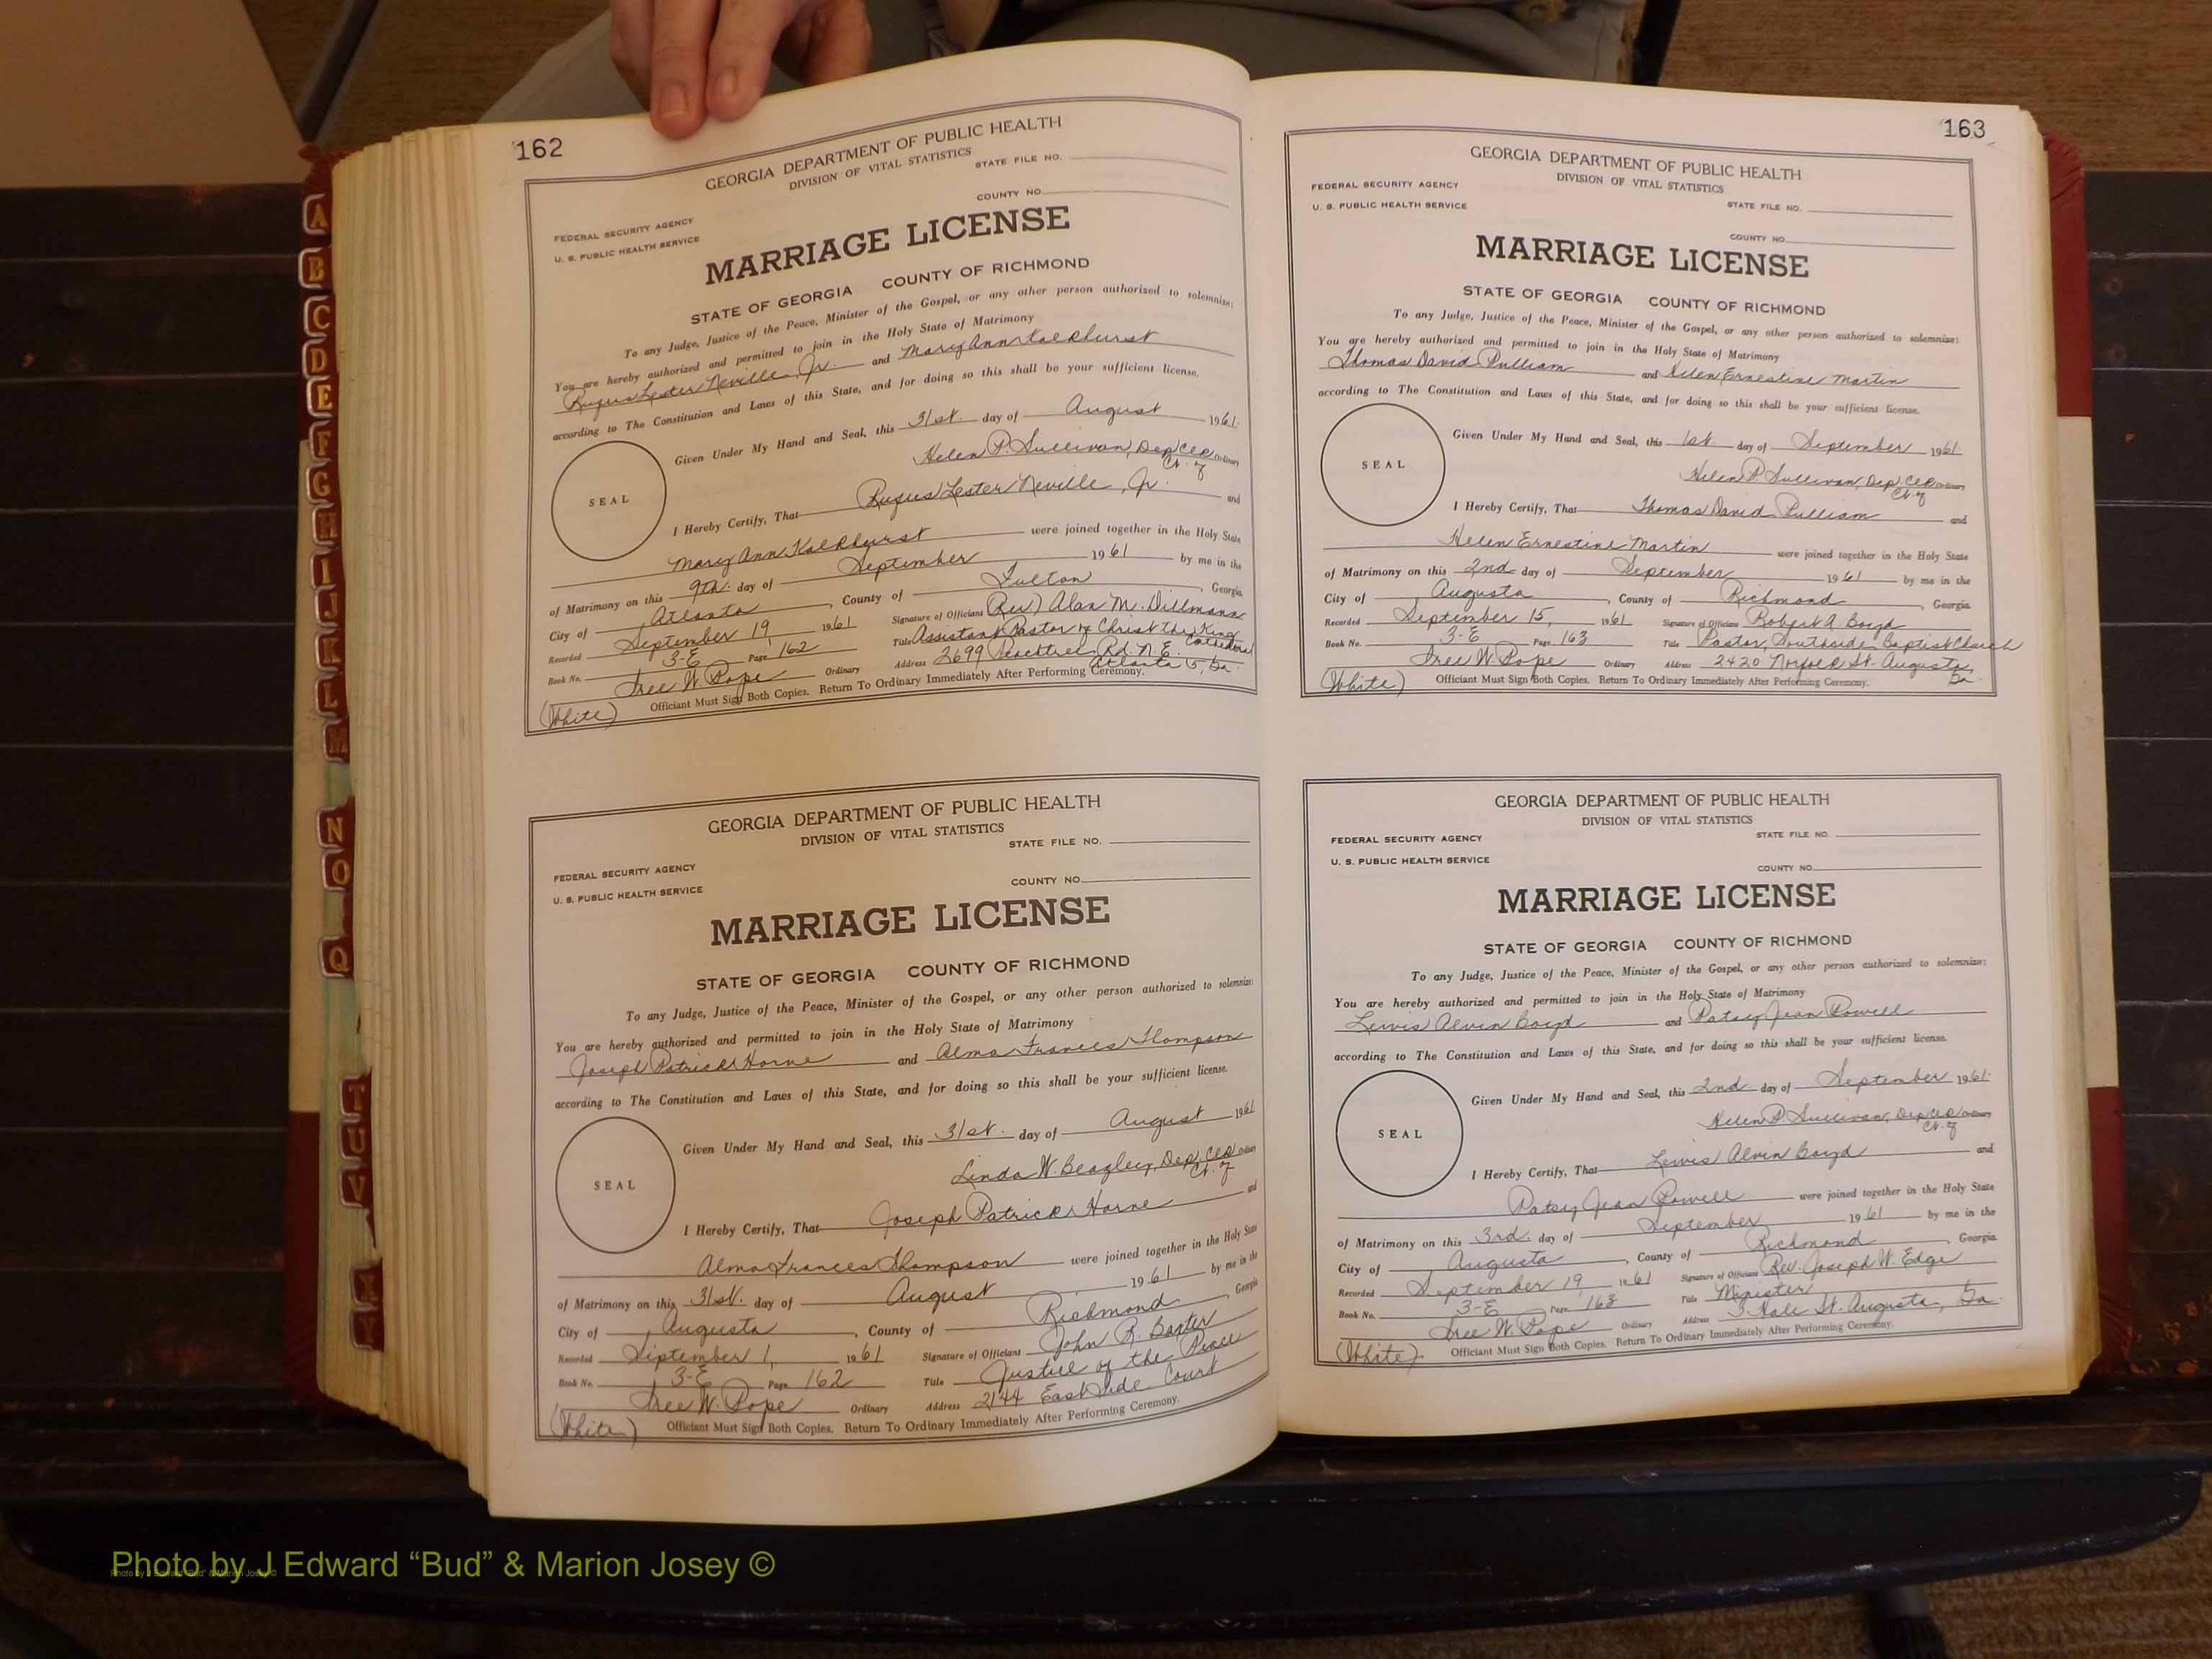 162
GEORGIA DEPARTMENT OF PUBLIC HEALTH
DIVISION OF VITAL STATISTICS
STATE FILE NO.
COUNTY NO.
FEDERAL SECURITY AGENCY
U. S. PUBLIC HEALTH SERVICE
MARRIAGE LICENSE
STATE OF GEORGIA COUNTY OF RICHMOND
To any Judge, Justice of the Peace, Minister of the Gospel, or any other person authorized to solemnize:
You are hereby authorized and permitted to join in the Holy State of Matrimony
Rufus Lester Neville, Jr. and Mary Ann Kalkhurst
according to The Constitution and Laws of this State, and for doing so this shall be your sufficient license.
Given Under My Hand and Seal, this 31st. day of August 1961.
Helen P. Sullivan, Dep. Clk. Ordinary
Ct. of
SEAL
I Hereby Certify, That Rufus Lester Neville, Jr. and
Mary Ann Kalkhurst were joined together in the Holy State
of Matrimony on this 9th. day of September 1961 by me in the
City of Atlanta, County of Fulton, Georgia
Recorded September 19 1961 Signature of Officiant (Rev.) Alan M. Dillmann
Book No. 3-E Page 162 Title Assistant Pastor of Christ the King Cathedral
Tree W. Pope Ordinary Address 2699 Peachtree Rd. N.E. Atlanta 5, Ga.
(White) Officiant Must Sign Both Copies. Return To Ordinary Immediately After Performing Ceremony.
GEORGIA DEPARTMENT OF PUBLIC HEALTH
DIVISION OF VITAL STATISTICS
STATE FILE NO.
COUNTY NO.
FEDERAL SECURITY AGENCY
U. S. PUBLIC HEALTH SERVICE
MARRIAGE LICENSE
STATE OF GEORGIA COUNTY OF RICHMOND
To any Judge, Justice of the Peace, Minister of the Gospel, or any other person authorized to solemnize:
You are hereby authorized and permitted to join in the Holy State of Matrimony
Joseph Patrick Horne and Alma Frances Thompson
according to The Constitution and Laws of this State, and for doing so this shall be your sufficient license.
Given Under My Hand and Seal, this 31st. day of August 1961
Linda W. Beazley, Dep. Clk. Ordinary
Ct. of
SEAL
I Hereby Certify, That Joseph Patrick Horne and
Alma Frances Thompson were joined together in the Holy State
of Matrimony on this 31st. day of August 1961 by me in the
City of Augusta, County of Richmond, Georgia
Recorded September 1, 1961 Signature of Officiant John R. Baxter
Book No. 3-E Page 162 Title Justice of the Peace
Tree W. Pope Ordinary Address 2144 East Side Court
(White) Officiant Must Sign Both Copies. Return To Ordinary Immediately After Performing Ceremony.
163
GEORGIA DEPARTMENT OF PUBLIC HEALTH
DIVISION OF VITAL STATISTICS
FEDERAL SECURITY AGENCY
U. S. PUBLIC HEALTH SERVICE
STATE FILE NO.
COUNTY NO.
MARRIAGE LICENSE
STATE OF GEORGIA COUNTY OF RICHMOND
To any Judge, Justice of the Peace, Minister of the Gospel, or any other person authorized to solemnize:
You are hereby authorized and permitted to join in the Holy State of Matrimony
Thomas David Pulliam and Helen Ernestine Martin
according to The Constitution and Laws of this State, and for doing so this shall be your sufficient license.
Given Under My Hand and Seal, this 1st. day of September 1961
Helen P. Sullivan, Dep. Clk. Ordinary
Ct. of
SEAL
I Hereby Certify, That Thomas David Pulliam and
Helen Ernestine Martin were joined together in the Holy State
of Matrimony on this 2nd day of September 1961 by me in the
City of Augusta, County of Richmond, Georgia
Recorded September 15, 1961 Signature of Officiant Robert A. Boyd
Book No. 3-E Page 163 Title Pastor, Southside Baptist Church
Tree W. Pope Ordinary Address 2420 Norfolk St. Augusta, Ga.
(White) Officiant Must Sign Both Copies. Return To Ordinary Immediately After Performing Ceremony.
GEORGIA DEPARTMENT OF PUBLIC HEALTH
DIVISION OF VITAL STATISTICS
FEDERAL SECURITY AGENCY
U. S. PUBLIC HEALTH SERVICE
STATE FILE NO.
COUNTY NO.
MARRIAGE LICENSE
STATE OF GEORGIA COUNTY OF RICHMOND
To any Judge, Justice of the Peace, Minister of the Gospel, or any other person authorized to solemnize:
You are hereby authorized and permitted to join in the Holy State of Matrimony
Lewis Alvin Boyd and Patsy Jean Powell
according to The Constitution and Laws of this State, and for doing so this shall be your sufficient license.
Given Under My Hand and Seal, this 2nd day of September 1961
Helen P. Sullivan, Dep. Clk. Ordinary
Ct. of
SEAL
I Hereby Certify, That Lewis Alvin Boyd and
Patsy Jean Powell were joined together in the Holy State
of Matrimony on this 3rd. day of September 1961 by me in the
City of Augusta, County of Richmond, Georgia
Recorded September 19, 1961 Signature of Officiant Rev. Joseph W. Edge
Book No. 3-E Page 163 Title Minister
Tree W. Pope Ordinary Address 3 Hale St. Augusta, Ga.
(White) Officiant Must Sign Both Copies. Return To Ordinary Immediately After Performing Ceremony.
A
B
C
D
E
F
G
H
I
J
K
L
M
N
O
Q
T
U
V
X
Y
Photo by J Edward “Bud” & Marion Josey ©
Photo by J Edward "Bud" & Marion Josey ©